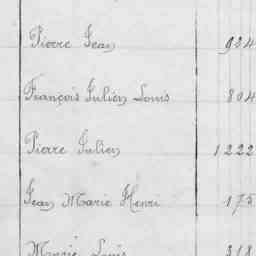 Pierre Jean 904
François Julien Louis 804
Pierre Julien 1222
Jean Marie Henri 175
Louis 318